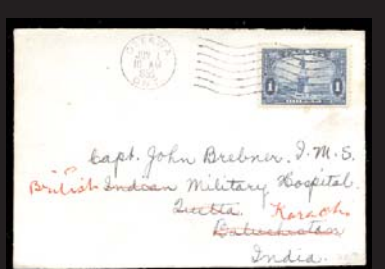 OTTAWA
JUN 1
10 AM
1935
ONT.
CANADA
1 1
Capt. John Brebner. I.M.S.
British Indian Military Hospital.
Quetta. Karachi
Baluchistan
India.